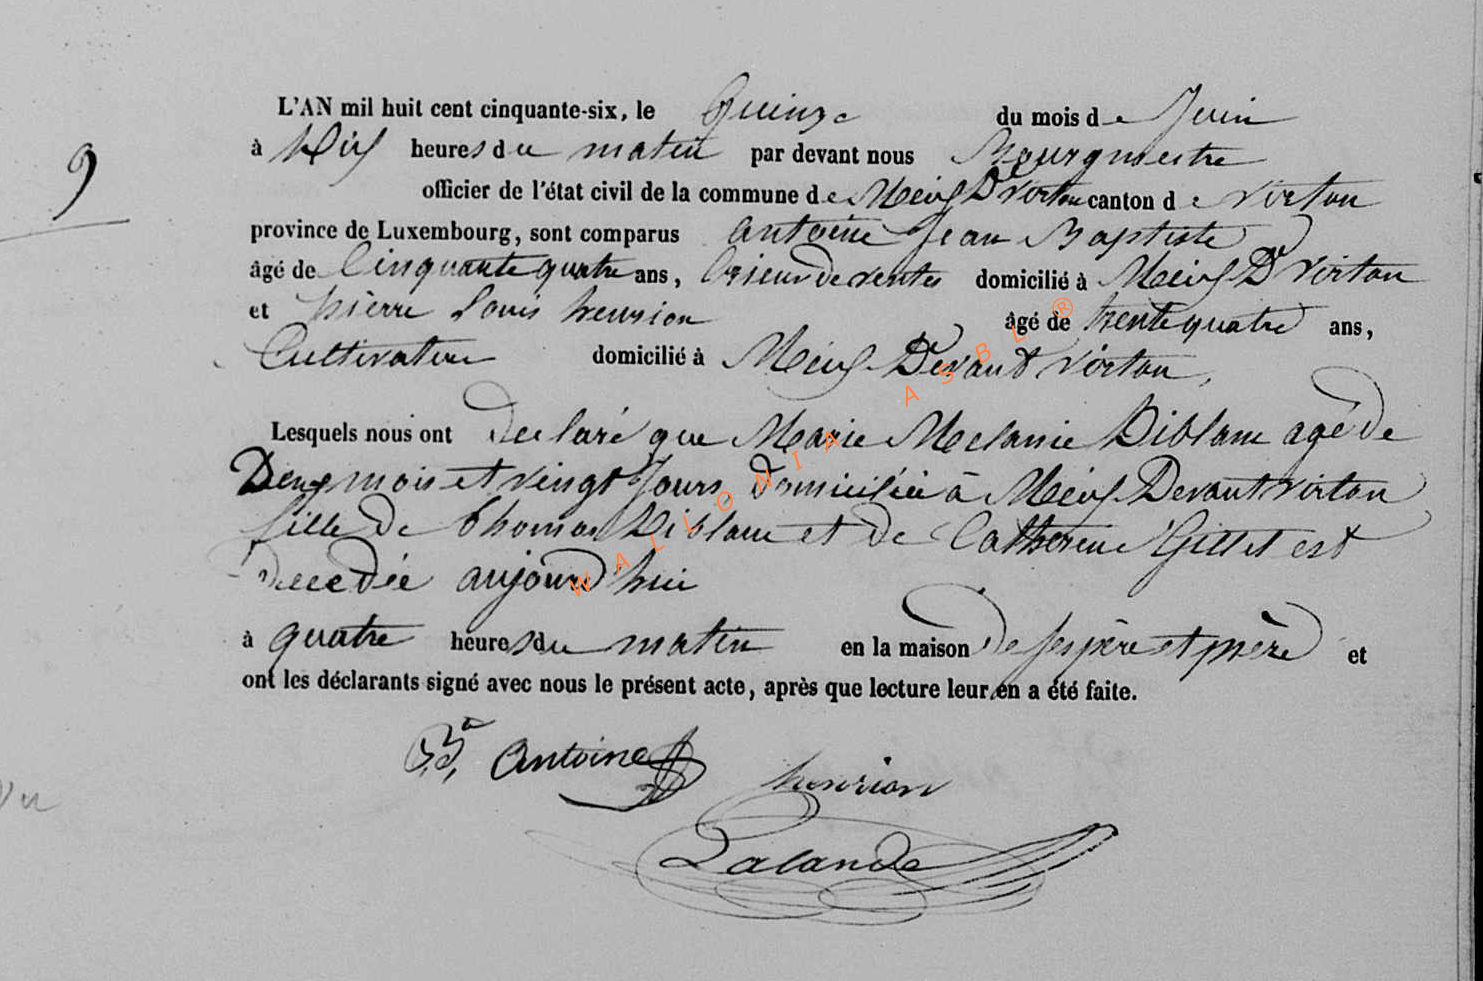 9
L'AN mil huit cent cinquante-six, le Quinze du mois de Juin
à Dix heures du matin par devant nous Bourgmestre
officier de l'état civil de la commune de Meix Dt Virton canton de Virton
province de Luxembourg, sont comparus Antoine Jean Baptiste
âgé de Cinquante quatre ans, Crieur de ventes domicilié à Meix Dt Virton
et pièrre Louis henrion âgé de trente quatre ans,
Cultivateur domicilié à Meix Devant Virton,
Lesquels nous ont declaré que Marie Melanie Diblam agé de
Deux mois et vingt Jours, Domiciliée à Meix Devant Virton
fille de thomas Diblam et de Catherine Gillet est
Decedée aujourd'hui
à quatre heures du matin en la maison de ses père et mère et
ont les déclarants signé avec nous le présent acte, après que lecture leur en a été faite.
J.Bte Antoine henrion
Lalande
Vu
WALLONIA ASBL ®